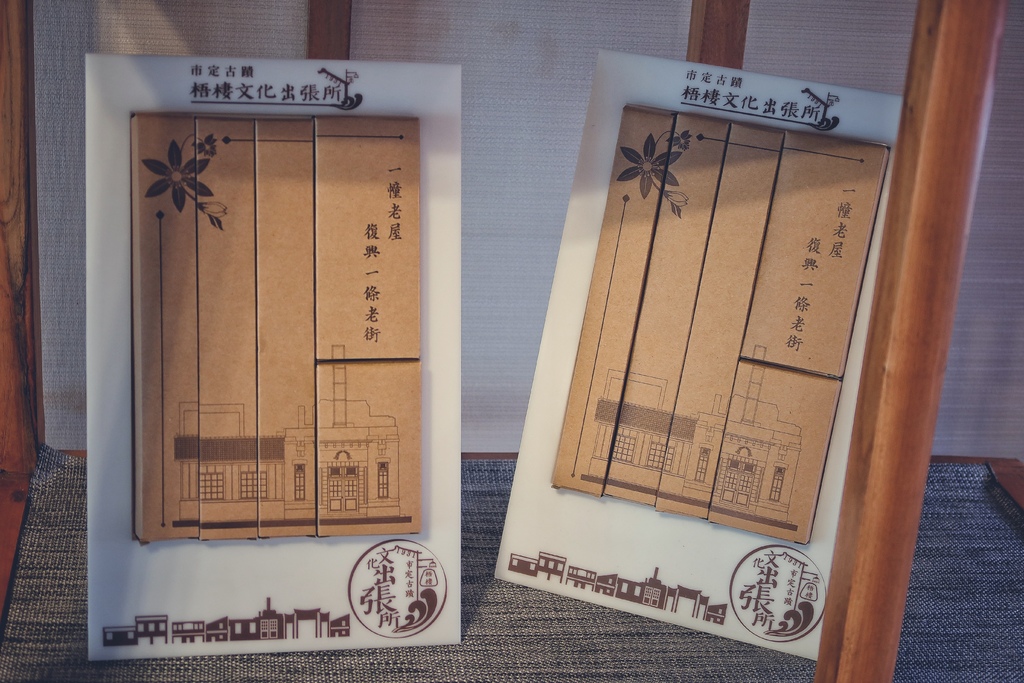 市定古蹟
梧棲文化出張所
一幢老屋
復興一條老街
市定古蹟
文化
出張所
梧棲
市定古蹟
梧棲文化出張所
一幢老屋
復興一條老街
市定古蹟
文化
出張所
梧棲